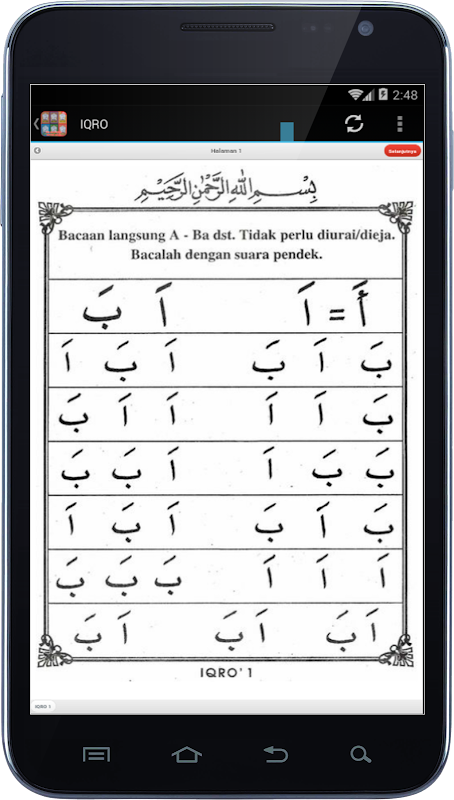 2:48
IQRO
Halaman 1
Selanjutnya
بِسْمِ اللهِ الرَّحْمٰنِ الرَّحِيْمِ
Bacaan langsung A - Ba dst. Tidak perlu diurai/dieja.
Bacalah dengan suara pendek.
أَ = اَ اَ بَ
بَ اَ بَ اَ بَ اَ
بَ اَ اَ اَ اَ بَ
بَ بَ اَ اَ بَ بَ
بَ اَ بَ اَ بَ اَ
اَ اَ اَ بَ بَ بَ
اَ بَ اَ بَ اَ بَ
IQRO' 1
IQRO 1